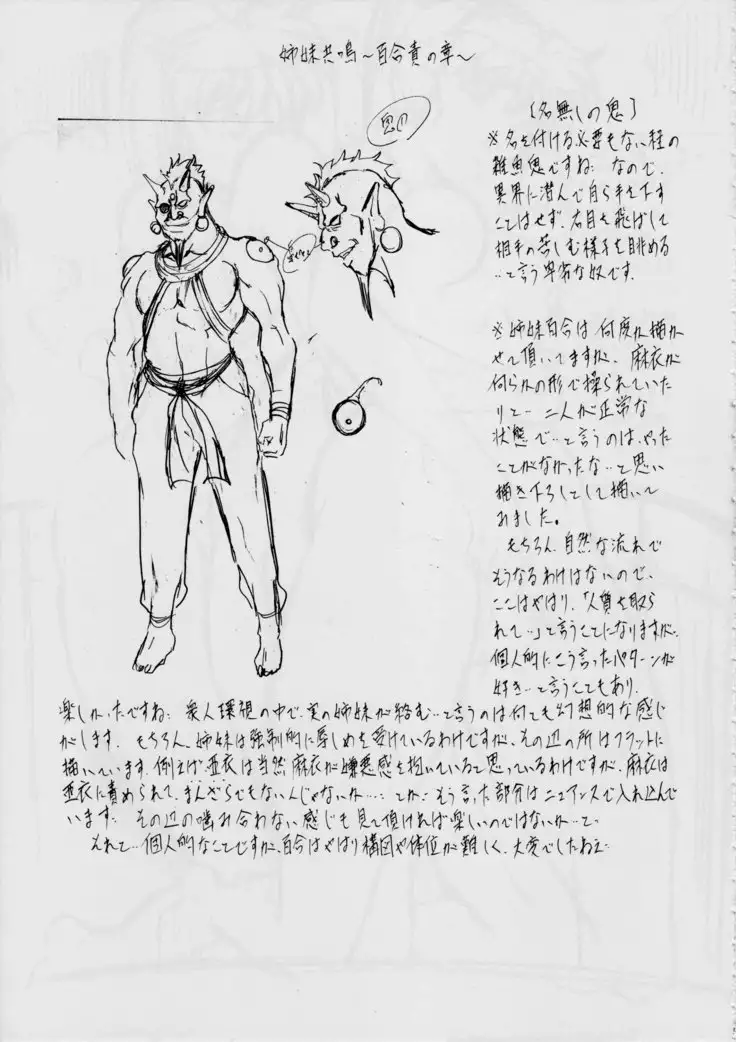 姉妹共鳴～百合責の章～
鬼の
【名無しの鬼】
※名を付ける必要もない程の
雑魚鬼ですね… なので、
異界に潜んで自ら手を下す
ことはせず、右目を飛ばして
相手の苦しむ様子を眺める
…と言う卑劣な奴です。
※姉妹百合は何度か描か
せて頂いてますが、麻衣が
何らかの形で操られていた
りと… 二人が正常な
状態で…と言うのは、やった
ことがなかったな…と思い
描き下ろしとして描いて
みました。
もちろん、自然な流れで
そうなるわけはないので、
ここはやはり、「人質を取ら
れて…」と言うことになりますが…
個人的にこう言ったパターンが
好き…と言うこともあり、
楽しかったですね… 衆人環視の中で、実の姉妹が絡む…と言うのは何とも幻想的な感じ
がします。もちろん、姉妹は強制的に辱しめを受けているわけですが、その辺の所はフラットに
描いています。例えば、亜衣は当然、麻衣が嫌悪感を抱いていると思っているわけですが、麻衣は
亜衣に責められて、まんざらでもないんじゃないか……とか… そう言った部分はニュアンスで入れ込んで
います… その辺の噛み合わない感じも見て頂ければ楽しいのではないか…と、
それと… 個人的なことですが、百合はやはり構図や体位が難しく、大変でしたねえ…